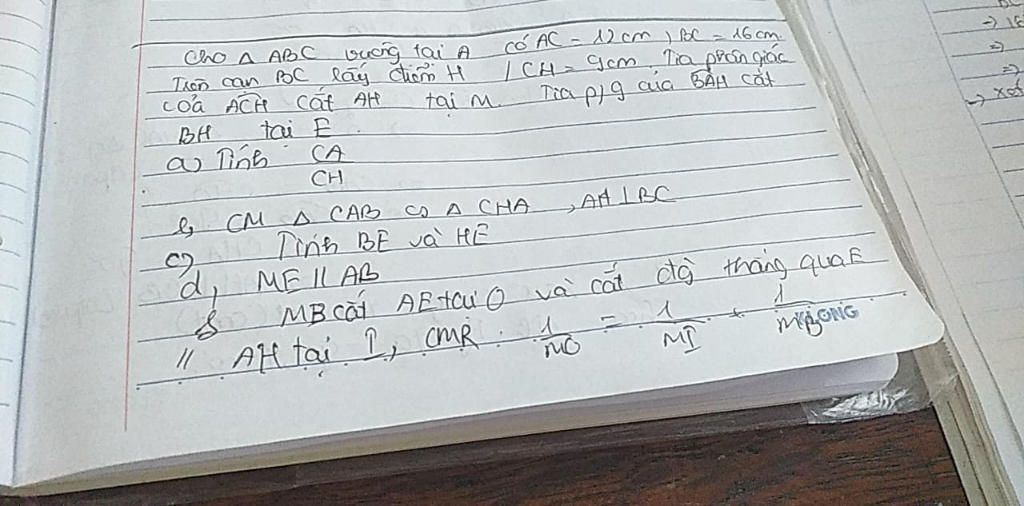 Cho Δ ABC vuông tại A có AC = 12cm, BC = 16cm.
Trên cạn BC lấy điểm H / CH = 9cm. Tia phân giác
của ACH cắt AH tại M. Tia p/g của BAH cắt
BH tại E.
a) Tính CA
CH
b, CM Δ CAB ∽ Δ CHA, AH ⊥ BC
c) Tính BE và HE
d, ME // AB
MB cắt AE tại O và cắt đg thẳng qua E
// AH tại I, CMR. 1/MO = 1/MI + 1/MB
KLONG